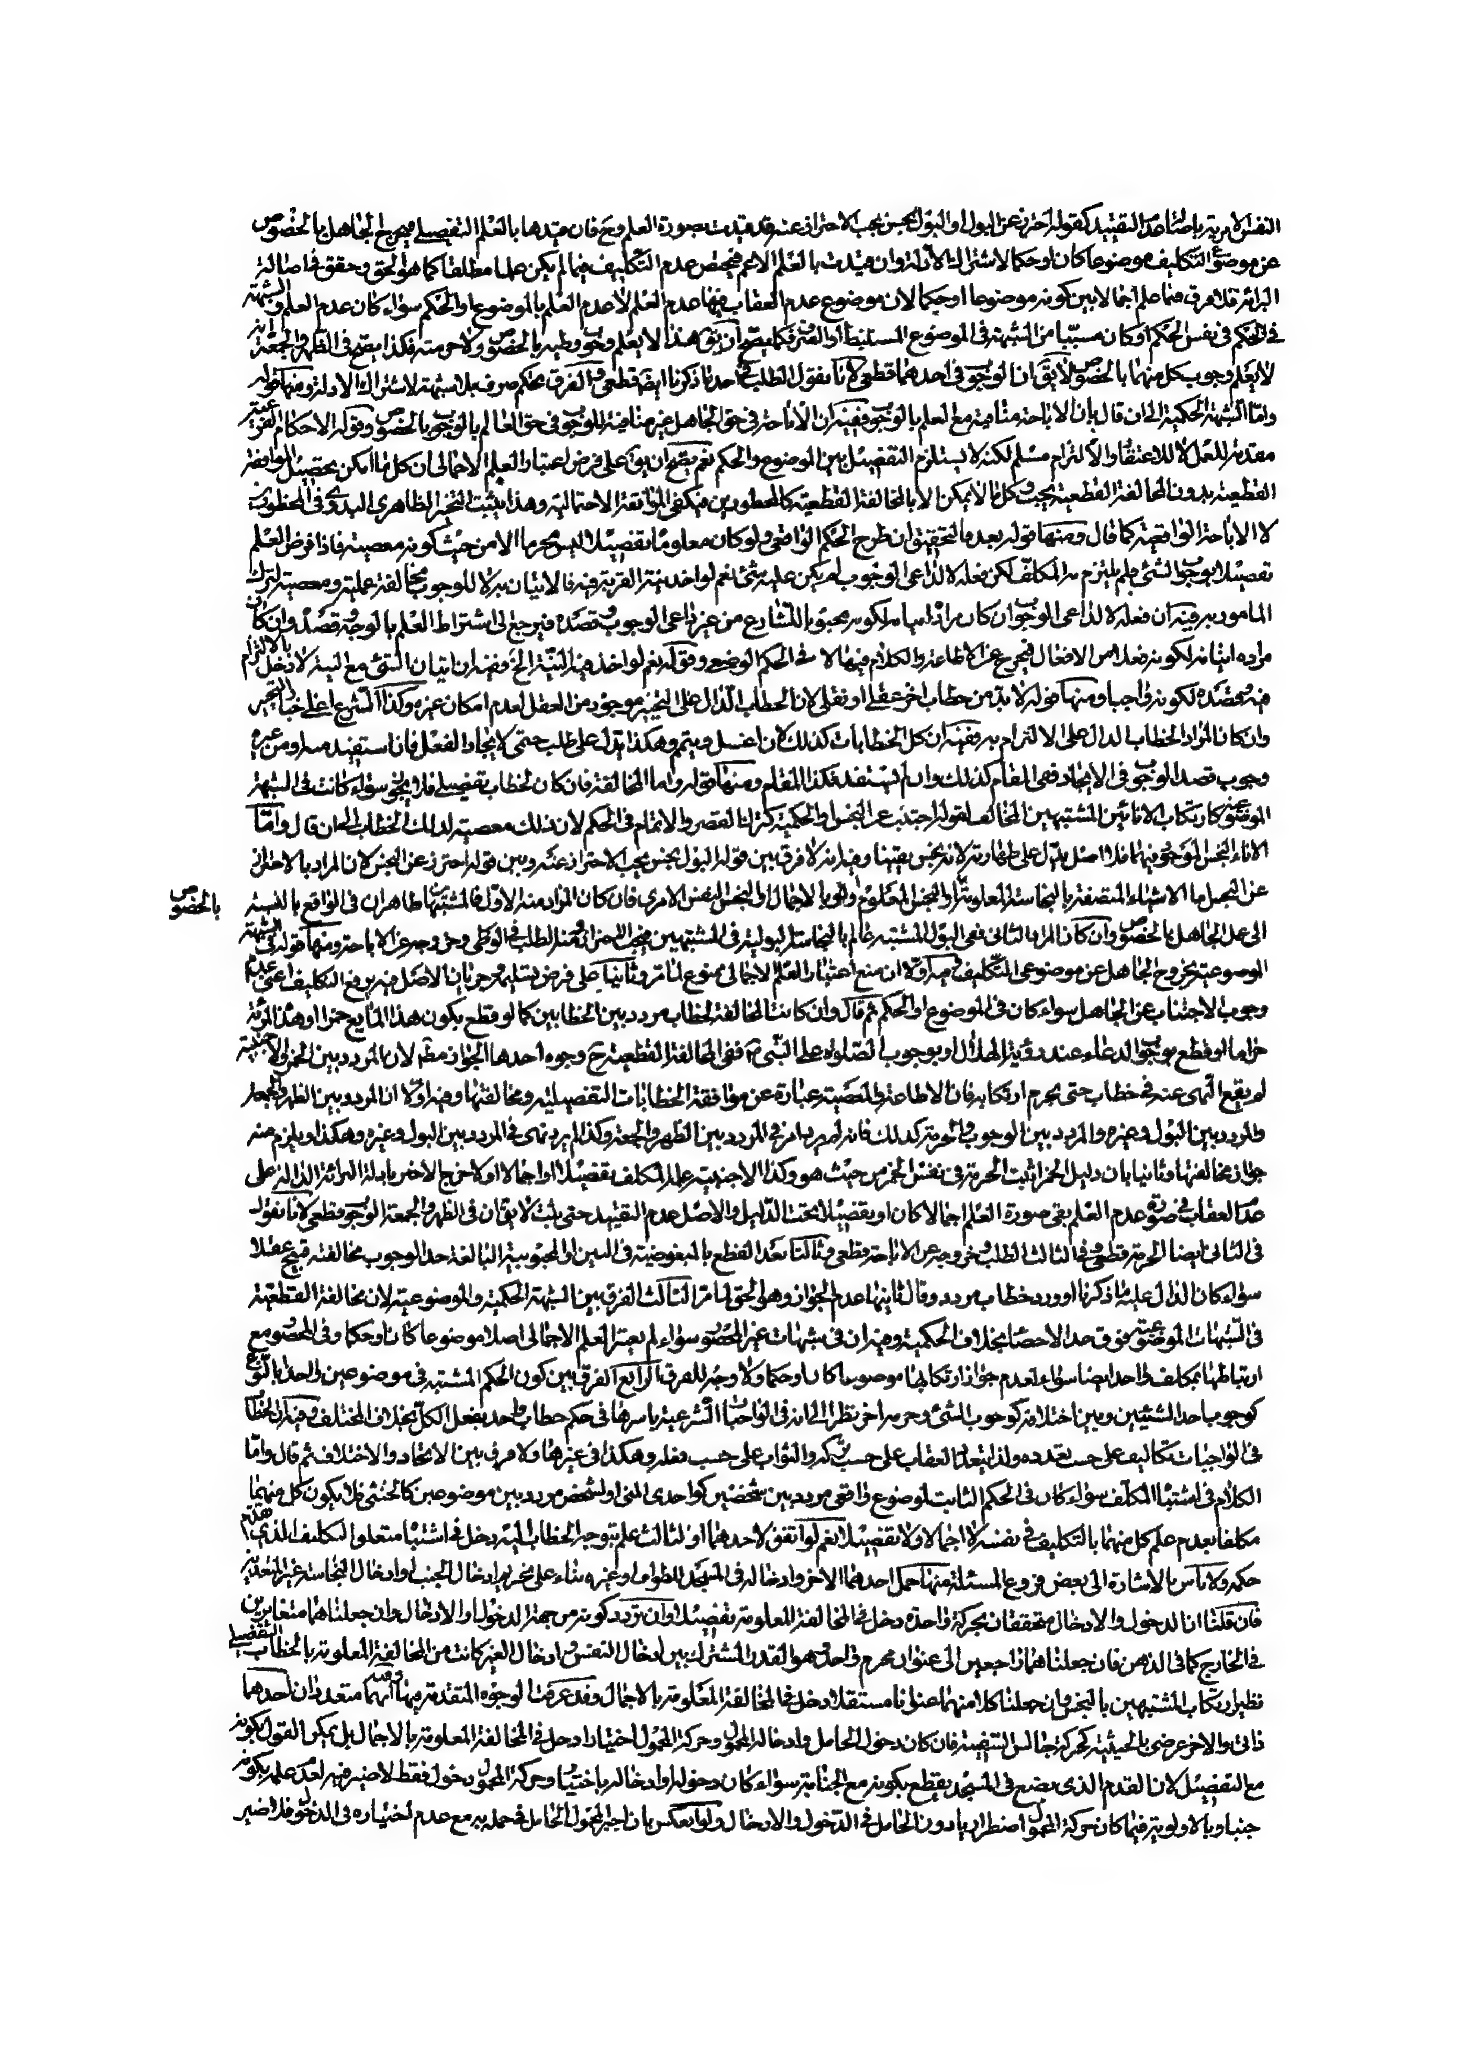 النفس الامرية باصالة عدم التقييد كقوله احترز عن البول او البول نجس يجب الاحتراز عنه قد قيدت بصورة العلم وح فان قيدها بالعلم التفصيلى فيخرج الجاهل بالخصوص
عن موضوع التكليف موضوعا كان او حكما لاشتراك الادلة وان قيدت بالعلم الاعم فيختص عدم التكليف فيما لم يكن علما مطلقا كما هو الحق وحقق فى اصالة
البرائة فلا فرق فيما علم اجمالا بين كونه موضوعا او حكما لان موضوع عدم العقاب فيها عدم العلم لا عدم العلم بالموضوع او الحكم سواء كان عدم العلم والشبهة
فى الحكم فى نفس الحكم او كان مسببا من الشبهة فى الموضوع المستنبط او الصرف فكما يصح ان يق هذا لا يعلم وجوب وطيه بالخصوص ولا حرمته فكذا يصح فى الظهر والجمعة انه
لا يعلم وجوب كل منهما بالخصوص لا يق ان الوجوب فى احدهما قطعى لانا نقول الطلب فى احد ما ذكرنا ايضا قطعى والفرق تحكم صرف بل شبهة لاشتراك الادلة ومنها قوله
واما الشبهة الحكمية الى ان قال بان الاباحة منافية مع العلم بالوجوب ففيه ان الاباحة فى حق الجاهل غير منافية للوجوب فى حق العالم بالوجوب بالخصوص وقوله الاحكام الفرعية
مقدمة للعمل لا للاعتقاد والالتزام مسلم لكنه لا يستلزم التفصيل بين الموضوع والحكم نعم يصح ان يق على فرض اعتبار العلم الاجمالى ان كل ما امكن تحصيل الموافقة
القطعية بدون المخالفة القطعية يجب وكل ما لا يمكن الا بالمخالفة القطعية كالمحظورين فيكفى الموافقة الاحتمالية وهذا يثبت التخيير الظاهرى البدوى فى المحظورين
لا الاباحة الواقعية كما قال ومنها قوله بعد ما التحقيق ان طرح الحكم الواقعى ولو كان معلوما تفصيلا ليس محرما الا من حيث كونه معصية فاذا فرض العلم
تفصيلا بوجوب الشئ فلم يلتزم به المكلف لكن فعله لا لداعى الوجوب لم يكن عليه شئ نعم لو اخذ نية القربة فيه فالاتيان به لا للوجوب مخالفة عملية ومعصية لترك
المامور به وفيه ان فعله لا لداعى الوجوب ان كان مراده اتيانه لكونه محبوبا للشارع من غير داعى الوجوب وقصده فيرجع الى اشتراط العلم بالوجوب وقصده وان كان
مراده اتيانه لكونه فعلا من الافعال فيخرج عن الاطاعة والكلام فيها لا فى الحكم الوضعى وقوله نعم لو اخذ فيه النية الخ وفيه ان اتيان الشئ مع النية لا دخل له بالالتزام
فيه وقصده لكونه واجبا ومنها قوله لا بد من خطاب اخر عقلى او نقلى لان الخطاب الدال على التخيير موجود من العقل لعدم امكان غيره وكذا الشرع اعنى اخبار التخيير
وان كان المراد الخطاب الدال على الالتزام به ففيه ان كل الخطابات كذلك لان اغسل وتيمم وهكذا تدل على طلب حتمى لايجاد الفعل فان استفيد منه او من غيره
وجوب قصد الوجوب فى الايجاد ففى المقام كذلك وان لم يستفد فكذا المقام ومنها قوله واما المخالفة فان كان لخطاب تفصيلى فلا يجوز سواء كانت فى الشبهة
الموضوعية كارتكاب الانائين المشتبهين المخالف لقوله اجتنب عن النجس او الحكمية كترك القصر والاتمام فى الحكم لان ذلك معصية لذلك الخطاب الى ان قال واما
الاناء النجس الموجود فيهما فلا اصل يدل على طهارته لانه نجس يقينا وفيه انه لا فرق بين قوله البول نجس يجب الاحتراز عنه وبين قوله احترز عن النجس لان المراد بالاحتراز
عن النجس اما الاشياء المتصفة بالنجاسة المعلومة او النجس المعلوم ولو بالاجمال او النجس النفس الامرى فان كان المراد منه الاول فالمشتبهات طاهران فى الواقع بالنسبة
بالخصوص
الى عل الجاهل بالخصوص وان كان المراد الثانى ففى البول المشتبه عالم بالنجاسة البولية فى المشتبهين فيجب الاحتراز ومنه الطلب فى الوطى وح وجه عن الاباحة ومنها قوله فى الشبهة
الموضوعية بخروج الجاهل عن موضوعى التكليف وفيه اولا ان منع اعتبار العلم الاجمالى ممنوع لما مر وثانيا على فرض تسليمه جريان الاصل فيه يرفع التكليف اعنى عدم
وجوب الاجتناب عن الجاهل سواء كان فى الموضوع او الحكم ثم قال وان كانت المخالفة لخطاب مردد بين الخطابين كما لو قطع بكون هذا المايع خمرا او هذه المرئة
حراما او قطع بوجوب الدعاء عند رؤية الهلال او بوجوب الصلوة على النبى ص ففى المخالفة القطعية ح وجوه احدها الجواز مطم لان المردد بين الخمر والاجنبية
لم يقع النهى عنه فى خطاب حتى يحرم ارتكابه فان الاطاعة والمعصية عبارة عن موافقة الخطابات التفصيلية ومخالفتها وفيه اولا ان المردد بين الظهر والجمعة
والمردد بين البول وغيره والمردد بين الوجوب والحرمة كذلك فانه لم يرد امر فى المردد بين الظهر والجمعة وكذا لم يرد نهى فى المردد بين البول وغيره وهكذا ويلزم منه
جواز مخالفتها وثانيا بان دليل الخمر اثبت الحرمة فى نفس الخمر من حيث هو وكذا الاجنبية علم المكلف تفصيلا او اجمالا اولا خرج الاخير بادلة البرائة الدالة على
عدم العقاب فى صورة عدم العلم بقى صورة العلم اجمالا كان او تفصيلا تحت الدليل والاصل عدم التقييد حتى يثبت لا يق ان فى الظهر والجمعة الوجوب قطعى لانا نقول
فى الثانى ايضا الحرمة قطعى وفى الثالث الطلب وخروجه عن الاباحة قطعى وثالثا بعد القطع بالمبغوضية فى البين او المحبوبية البالغة حد الوجوب مخالفته قبيح عقلا
سواء كان الدال عليه ما ذكرنا او ورد خطاب مردد وقال ثانيها عدم الجواز وهو الحق لما مر الثالث الفرق بين الشبهة الحكمية والموضوعية لان مخالفة القطعية
فى الشبهات الموضوعية فوق حد الاحصاء بخلاف الحكمية وفيه ان فى شبهات غير المحصور سواء لم يعتبر العلم الاجمالى اصلا موضوعا كان او حكما وفى المحصور مع
ارتباطها بمكلف واحد ايضا سواء لعدم جواز ارتكابها موضوعا كان او حكما ولا وجه للفرق الرابع الفرق بين كون الحكم المشتبه فى موضوعين واحدا بالنوع
كوجوب احد الشيئين وبين اختلافه كوجوب الشئ وحرمة اخر نظرا الى انه فى الواجبات الشرعية باسرها فى حكم خطاب واحد بفعل الكل بخلاف المختلف وفيه ان الخطاب
فى الواجبات تكاليف على حسب تعدده ولذا يتعدد العقاب على حسب تركه والثواب على حسب فعله وهكذا فى غيرها ولا فرق بين الاتحاد والاختلاف ثم قال واما
الكلام فى اشتباه المكلف سواء كان فى الحكم الثابت لموضوع واقعى مردد بين شخصين كواجدى المنى او لشخص مردد بين موضوعين كالخنثى فلا يكون كل منهما
مكلفا لعدم علم كل منهما بالتكليف فى نفسه لا اجمالا ولا تفصيلا نعم لو اتفق لاحدهما او لثالث علم بتوجه الخطاب اليه دخل فى اشتباه متعلق التكليف الذى تقدم
حكمه ولا باس بالاشارة الى بعض فروع المسئلة منها حمل احدهما الاخر وادخاله فى المسجد للطواف او غيره بناء على تحريم ادخال الجنب او ادخال النجاسة الغير المتعدية
فان قلنا ان الدخول والادخال متحققان بحركة واحدة دخل فى المخالفة المعلومة تفصيلا وان تردد كونه من جهة الدخول او الادخال وان جعلناهما متغايرين
فى الخارج كما فى الذهن فان جعلناهما راجعين الى عنوان محرم واحد وهو القدر المشترك بين ادخال النفس وادخال الغير كانت من المخالفة المعلومة بالخطاب التفصيلى
نظير ارتكاب المشتبهين بالنجس وان جعلنا كلا منهما عنوانا مستقلا دخل فى المخالفة المعلومة بالاجمال وقد عرفت الوجوه المتقدمة فيها وفيه انهما متعددان احدهما
ذاتى والاخر عرضى بالحيثية كحركة جالس السفينة فان كان دخول الحامل وادخاله المحمول وحركة المحمول اختيارا دخل فى المخالفة المعلومة بالاجمال بل يمكن القول بكونه
مع التفصيل لان القدم الذى يضع فى المسجد يقطع بكونه مع الجنابة سواء كان دخوله او ادخاله باختيار وحركة المحمول دخول فقط لا ضير فيه لعدم علمه بكونه
جنبا وبالاولوية فيما كان حركة المحمول اضطراريا دون الحامل فى الدخول والادخال ولو انعكس بان اجبر المحمول الحامل فحمله به مع عدم اختياره فى الدخول فلا ضير